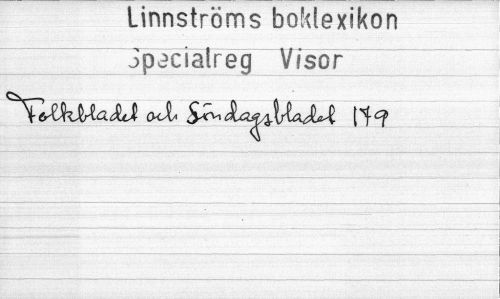 Linnströms boklexikon
Specialreg Visor
Folkbladet och Söndagsbladet 179